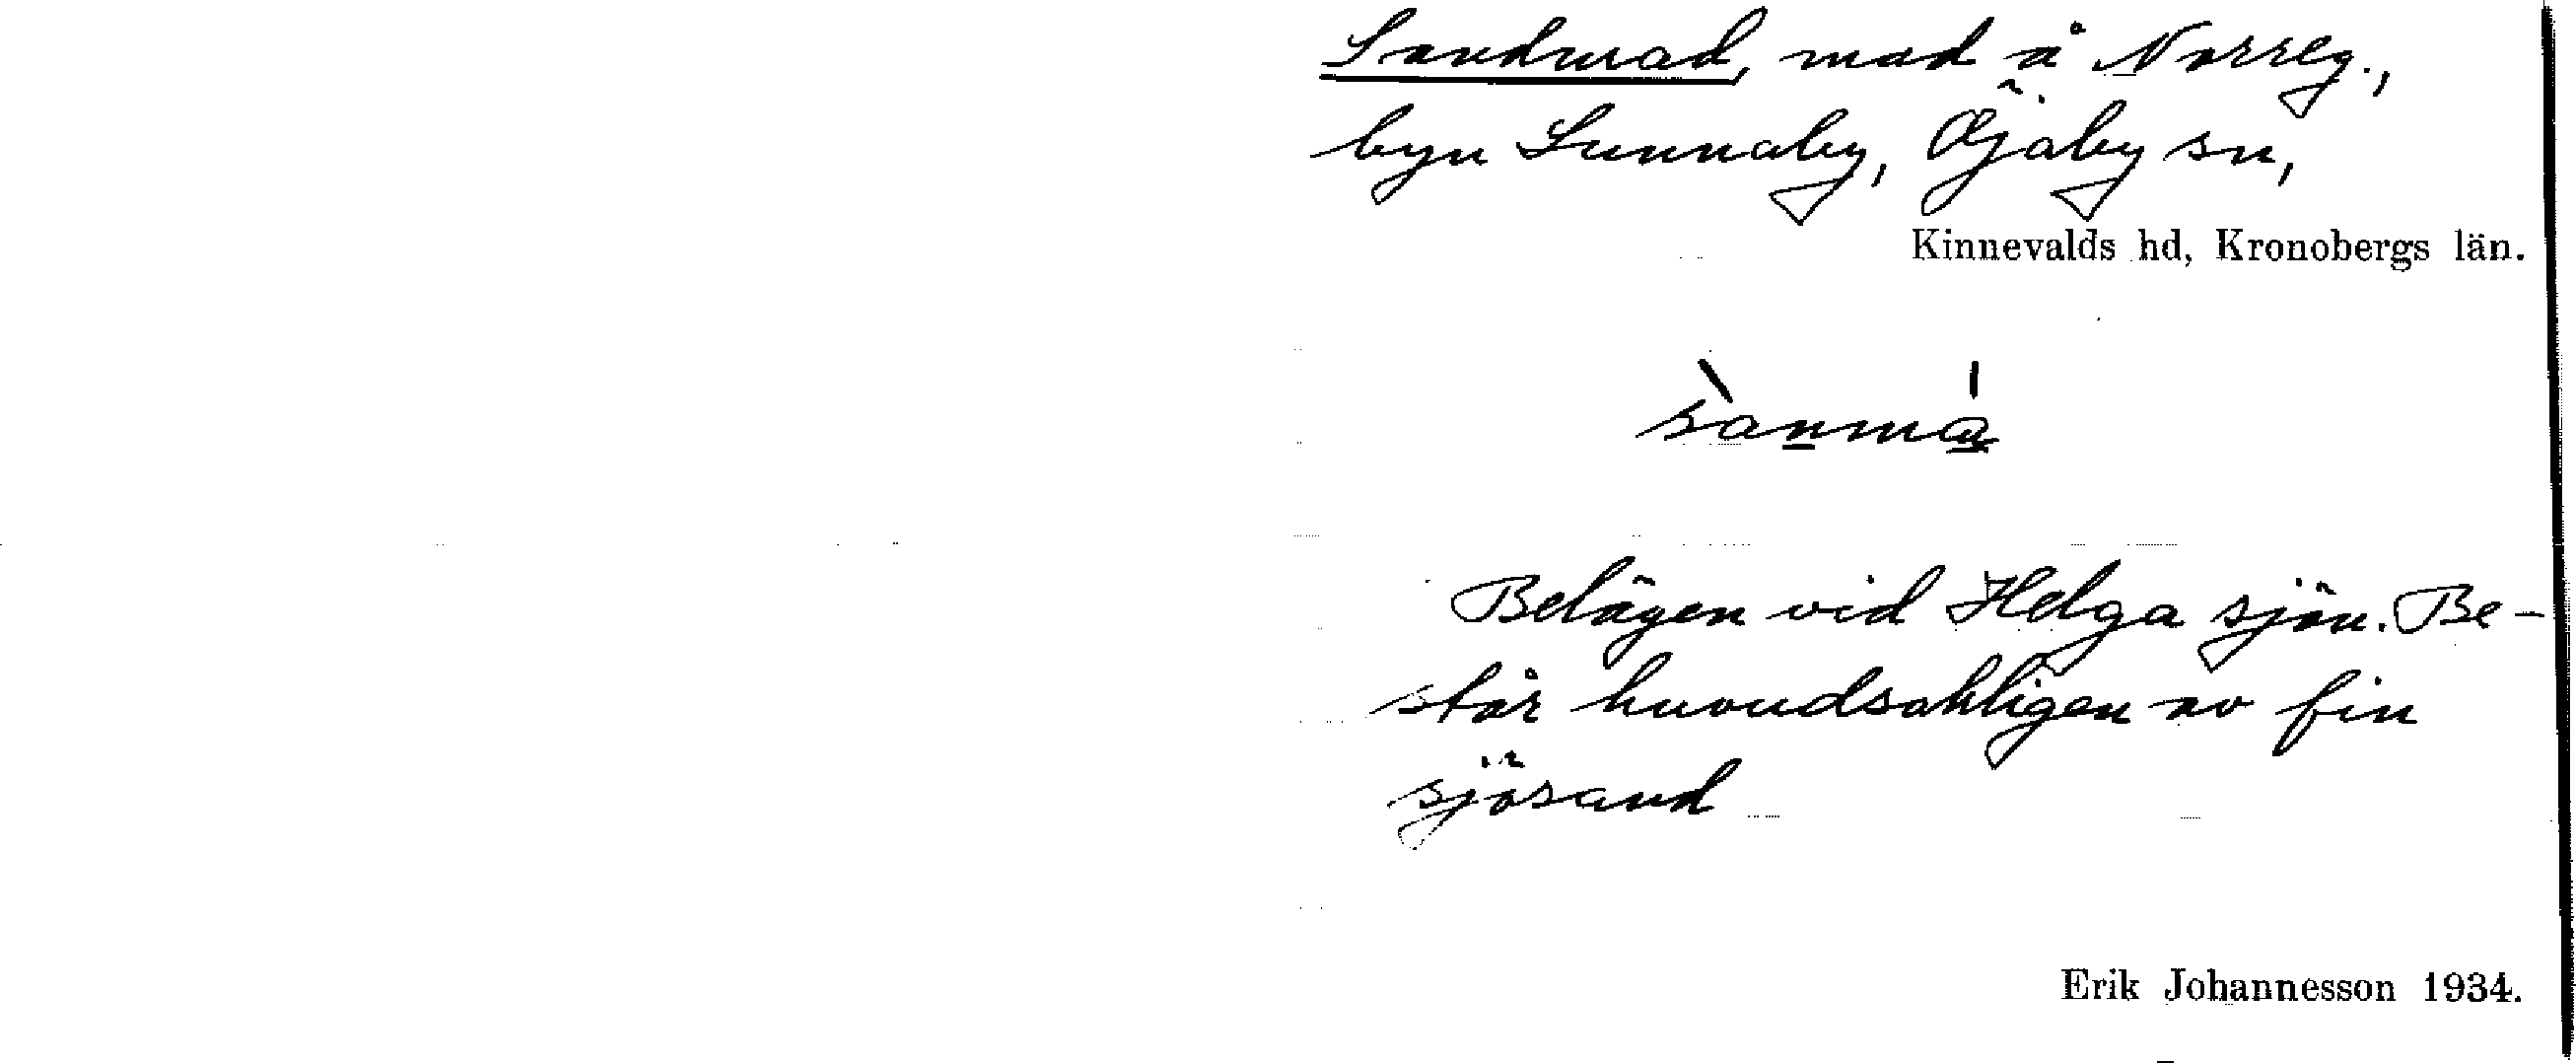 Sandmad, mad å Norreg.,
byn Lunnaby, Öjaby sn,
Kinnevalds hd, Kronobergs län.
sanma
Belägen vid Helga sjön. Be-
står huvudsakligen av fin
sjösand
Erik Johannesson 1934.